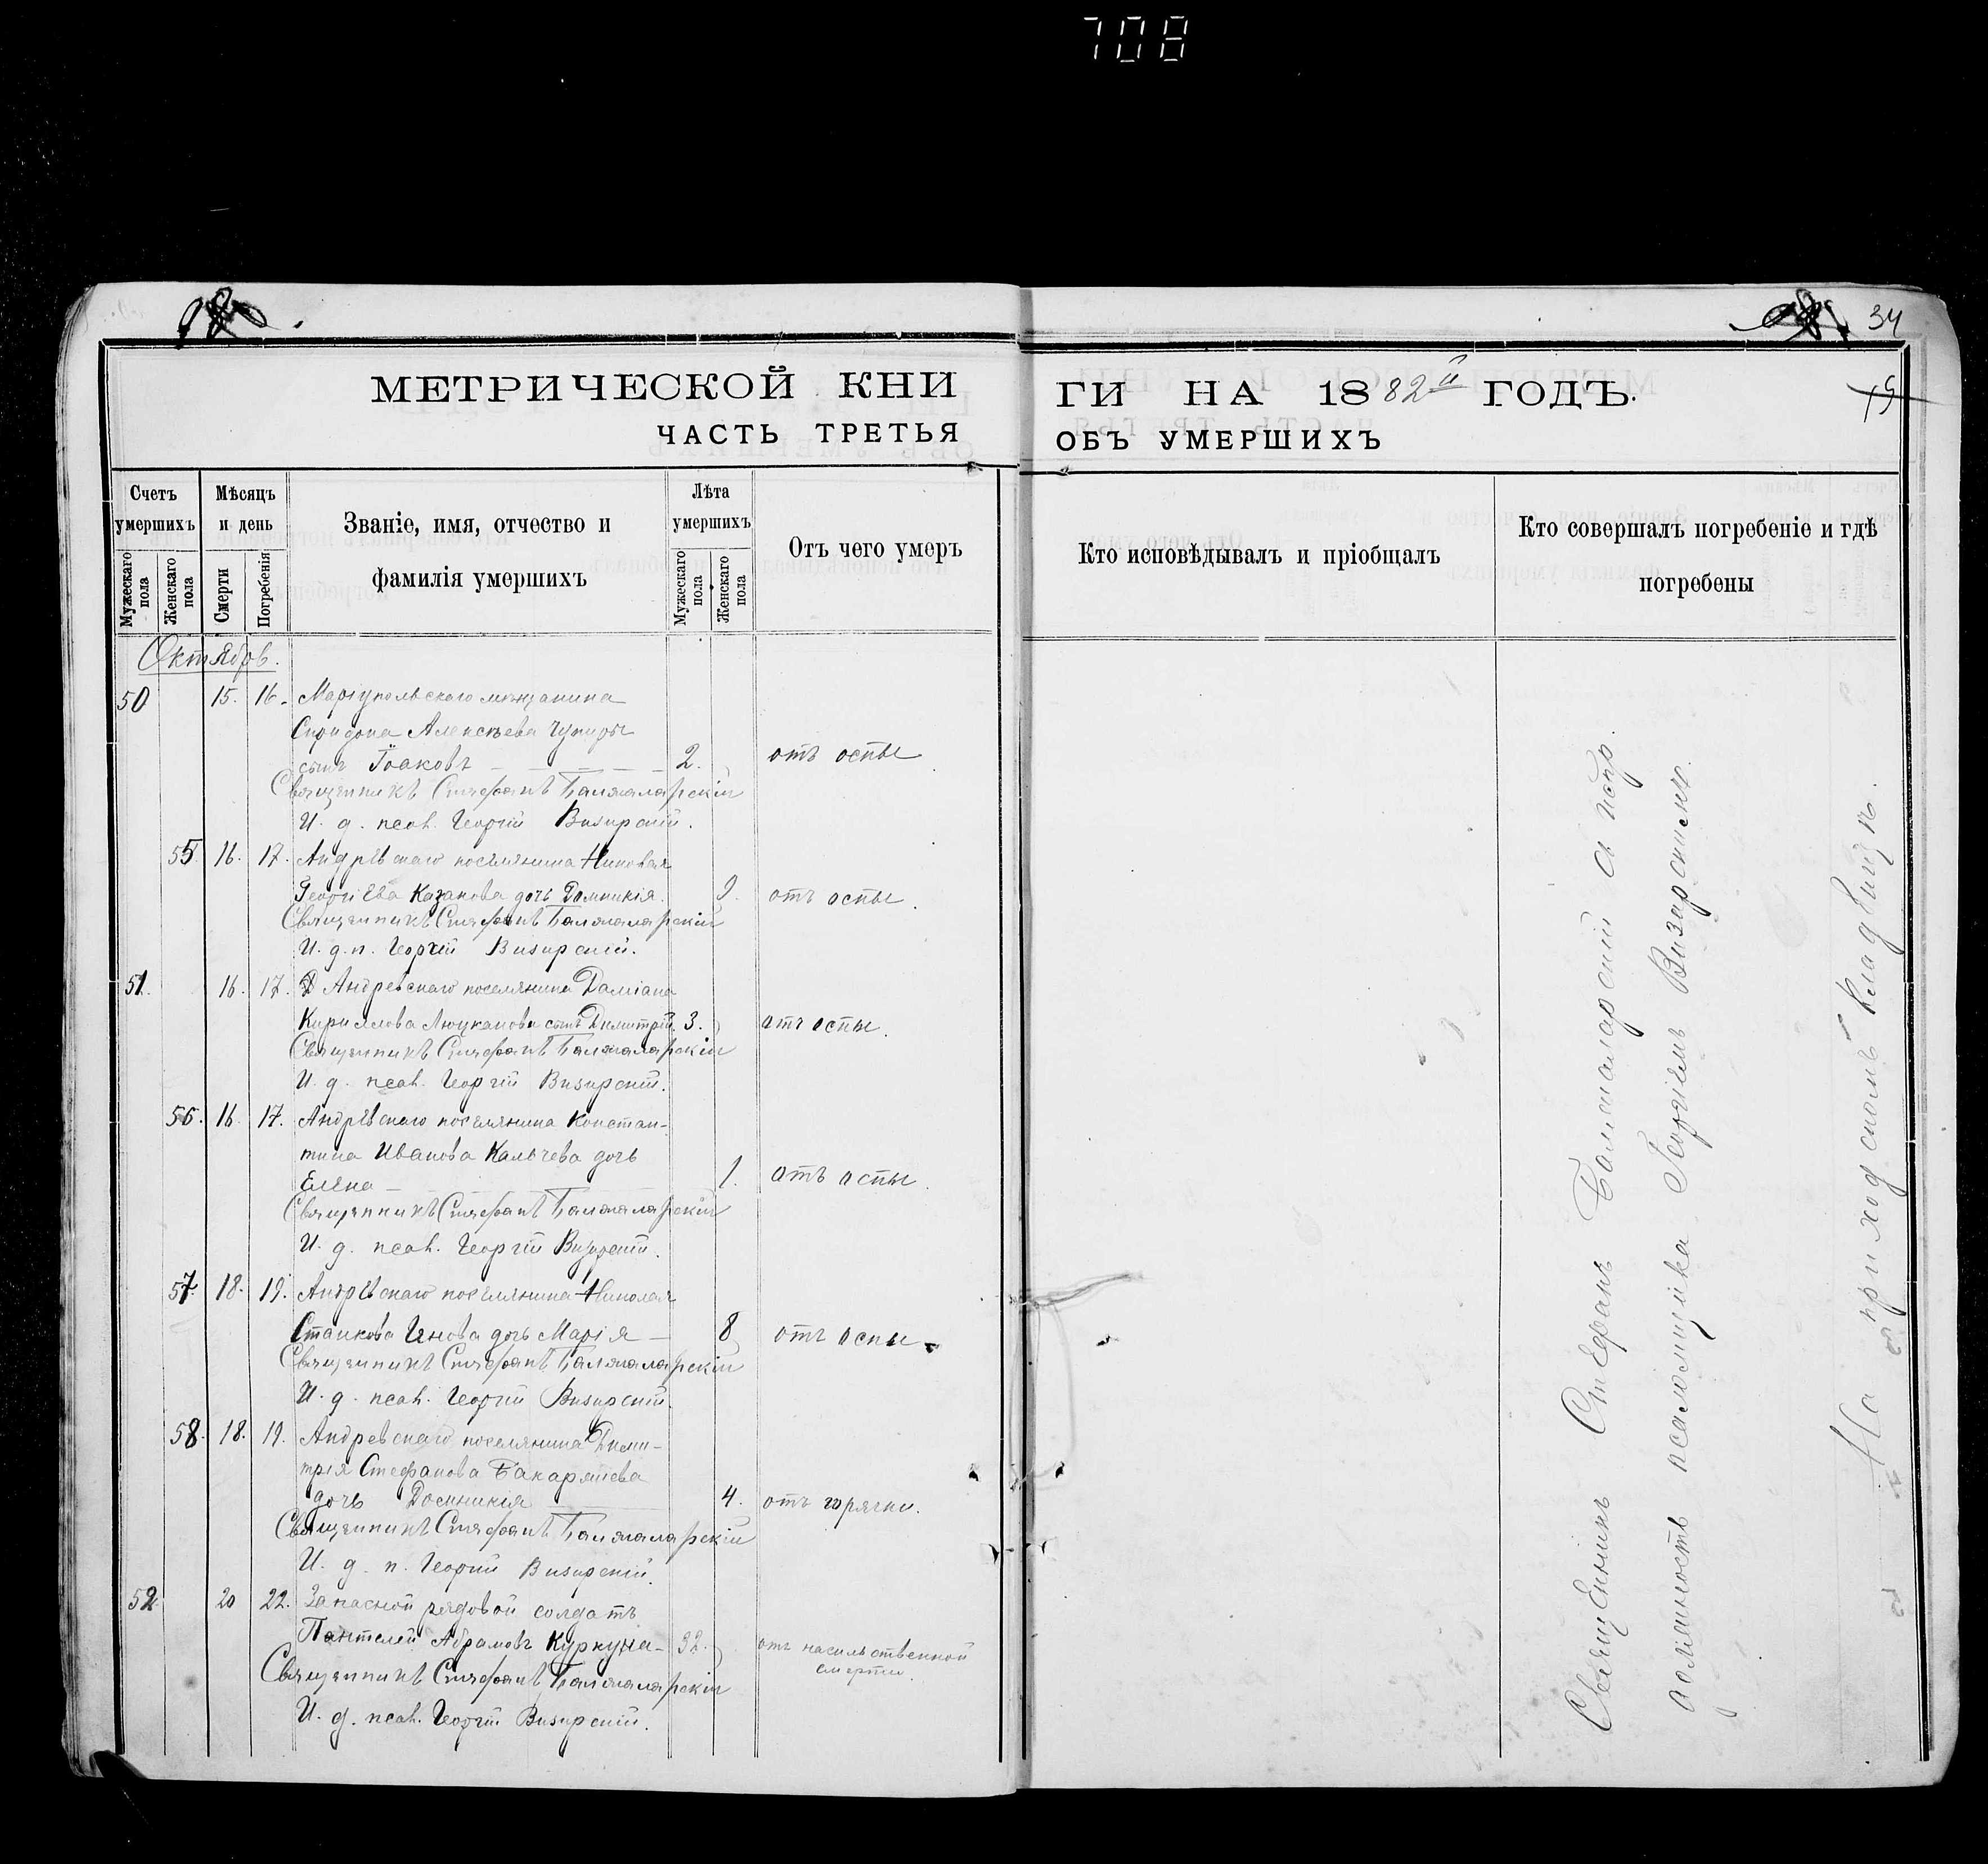 708
34
МЕТРИЧЕСКОЙ КНИ
ГИ НА 1882й ГОДЪ.
ЧАСТЬ ТРЕТЬЯ
ОБЪ УМЕРШИХЪ
Счетъ умершихъ
Мужескаго пола
Женскаго пола
Мѣсяцъ и день
Смерти
Погребенія
Званіе, имя, отчество и
фамилія умершихъ
Лѣта умершихъ
Мужескаго пола
Женскаго пола
Отъ чего умеръ
Кто исповѣдывалъ и пріобщалъ
Кто совершалъ погребеніе и гдѣ
погребены
Октябрь.
50 15. 16. Маріупольскаго мѣщанина
Спиридона Алексѣева
сынъ Іоаковъ 2. отъ оспы
Священникъ Стефанъ Балжаларскій
И. д. псал. Георгій Визирскій.
55 16. 17. Андрѣвскаго поселянина Николая
Георгіева Казакова дочь Домникія. 9. отъ оспы.
Священникъ Стефанъ Балжаларскій
И. д. п. Георгій Визирскій.
51. 16. 17. Андревскаго поселянина Даміана
Кириллова Люцканова сынъ Димитрій. 3. отъ оспы.
Священникъ Стефанъ Балжаларскій
И. д. псал. Георгій Визирскій.
56. 16. 17. Андрѣвскаго поселянина Констан-
тина Иванова Кальчева дочь
Елена 1. отъ оспы.
Священникъ Стефанъ Балжаларскій
И. д. псал. Георгій Визирскій.
57. 18. 19. Андрѣвскаго поселянина Николая
Станкова Енова дочь Марія 8 отъ оспы
Священникъ Стефанъ Балжаларскій
И. д. псал. Георгій Визирскій.
58. 18. 19. Андревскаго поселянина Дими-
трія Стефанова
дочь Домникія 4. отъ горячки.
Священникъ Стефанъ Балжаларскій
И. д. п. Георгій Визирскій.
52 20 22. Запасной рядовой солдатъ
Пантелей Абрамовъ Куркуна 32. отъ насильственной
смерти.
Священникъ Стефанъ Балжаларскій
И. д. псал. Георгій Визирскій.
Священникъ Стефанъ Балжаларскій съ испр.
должность псаломщика Георгіемъ Визирскимъ.
На приходскомъ кладбищѣ.